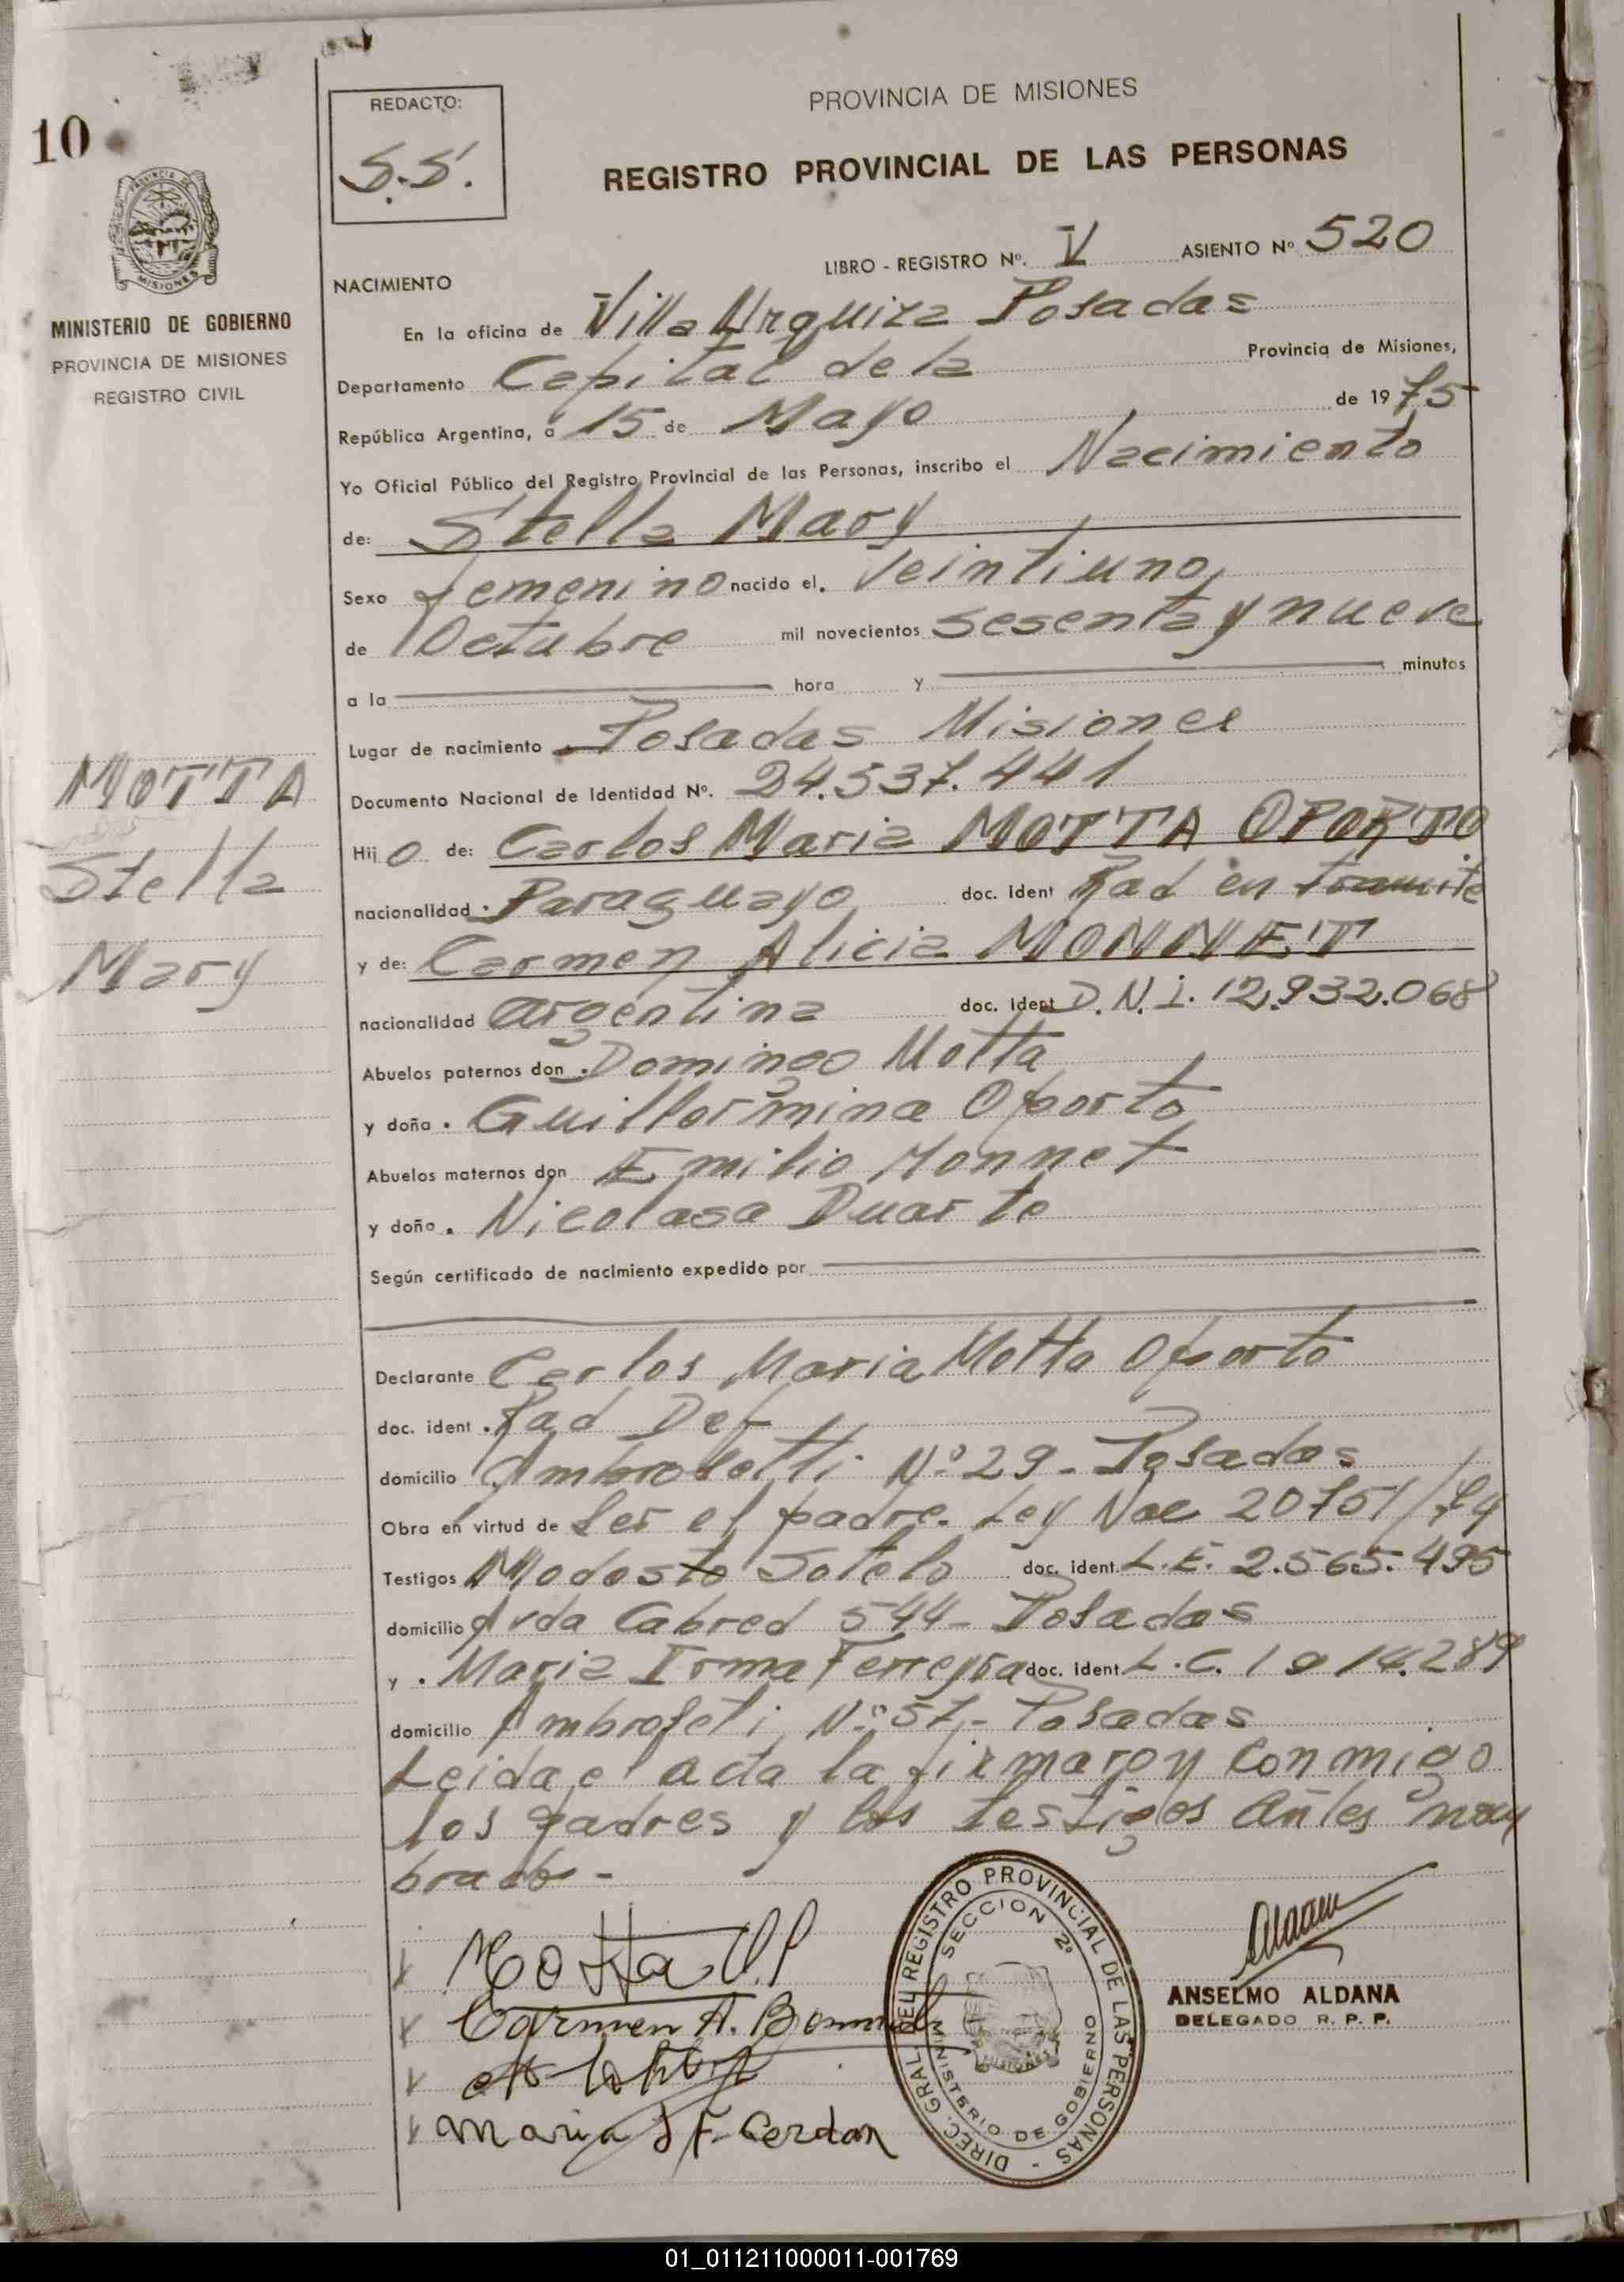 10
REDACTO:
S.S.
PROVINCIA DE MISIONES
REGISTRO PROVINCIAL DE LAS PERSONAS
PROVINCIA DE
MISIONES
MINISTERIO DE GOBIERNO
PROVINCIA DE MISIONES
REGISTRO CIVIL
LIBRO - REGISTRO Nº. V ASIENTO Nº 520
NACIMIENTO
En la oficina de Villa Urquiza Posadas
Departamento Capital de la Provincia de Misiones,
República Argentina, a 15 de Mayo de 1975
Yo Oficial Público del Registro Provincial de las Personas, inscribo el Nacimiento
de: Stella Mary
Sexo femenino nacido el. Veintiuno
de Octubre mil novecientos sesenta y nueve
a la hora y minutos
Lugar de nacimiento Posadas Misiones
Documento Nacional de Identidad Nº. 24.537.441
MOTTA
Stella
Mary
Hijo de: Carlos Maria MOTTA OPORTO
nacionalidad Paraguayo doc. ident Rad en tramite
y de: Carmen Alicia MONNET
nacionalidad argentina doc. ident D.N.I. 12.932.068
Abuelos paternos don Domingo Motta
y doña Guillermina Oporto
Abuelos maternos don Emilio Monnet
y doña Nicolasa Duarte
Según certificado de nacimiento expedido por
Declarante Carlos Maria Motta Oporto
doc. ident Rad Def
domicilio Ambrosetti Nº 29 - Posadas
Obra en virtud de Ser el padre. Ley Nac 20751/74
Testigos Modesto Sotelo doc. ident. L.E. 2.565.495
domicilio Avda Cabred 544 - Posadas
y Maria Irma Ferreyra doc. ident. L.C. 14.289
domicilio Ambroseti Nº 57 - Posadas
Leida el acta la firmaron conmigo
los padres y los testigos antes nom
brado -
Motta O.P
Carmen A.
Maria I F. Cerdan
DIREC. GRAL. DEL REGISTRO PROVINCIAL DE LAS PERSONAS -
SECCION 2ª
MISIONES
MINISTERIO DE GOBIERNO
ANSELMO ALDANA
DELEGADO R. P. P.
01_011211000011-001769